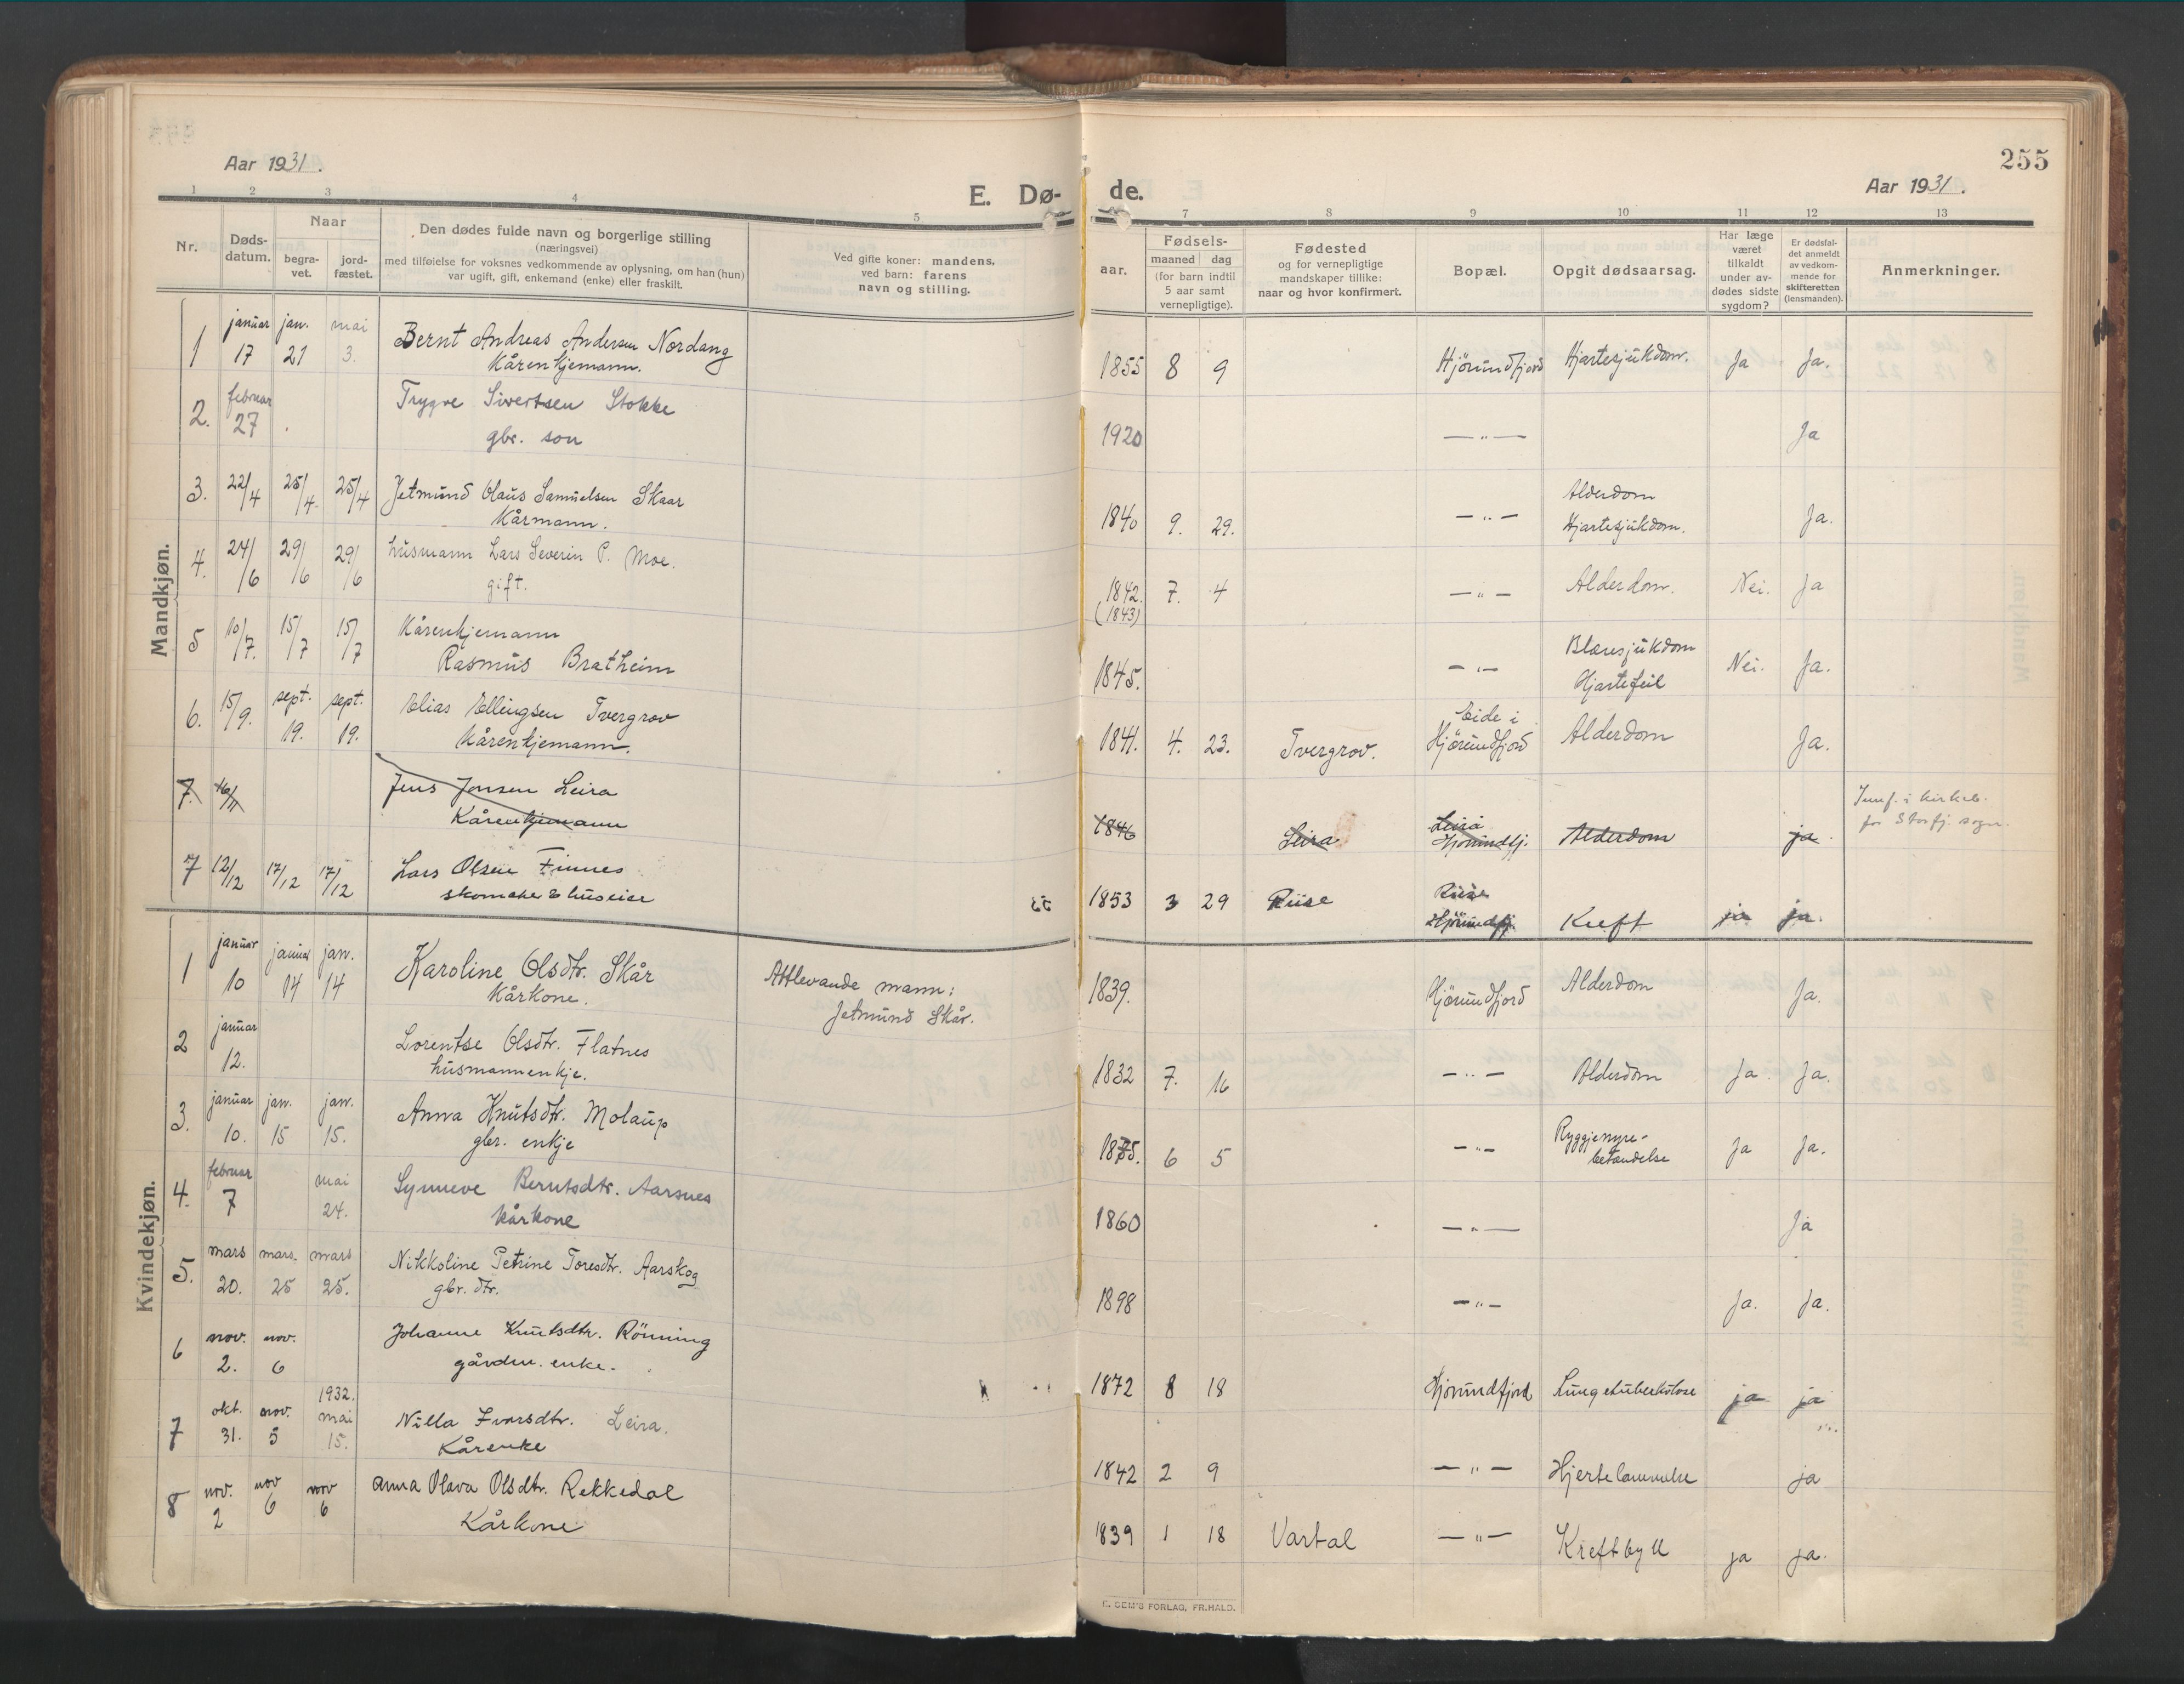 Aar 1931.
E. Dø-
1 2 3 4 5
Nr.
Døds-
datum.
Naar
begra-
vet.
jord-
fæstet.
Den dødes fulde navn og borgerlige stilling
(næringsvei)
med tilføielse for voksnes vedkommende av oplysning, om han (hun)
var ugift, gift, enkemand (enke) eller fraskilt.
Ved gifte koner: mandens,
ved barn: farens
navn og stilling.
Mandkjøn.
1 januar 17 jan. 21 mai 3. Bernt Andreas Andersen Nordang
Kårenkjemann.
2. februar 27 Trygve Sivertsen Stokke
gbr. son
3. 22/4 25/4 25/4 Jetmund Olaus Samuelsen Skaar
Kårmann.
4. 24/6 29/6 29/6 husmann Lars Severin P. Moe.
gift.
5 10/7. 15/7 15/7 Kårenkjemann
Rasmus Bratheim
6. 15/9. sept. 19. sept. 19. Elias Ellingsen Tvergrov
Kårenkjemann.
7. 16/11 Jens Jonsen Leira
Kårenkjemann
7 12/12 17/12 17/12 Lars Olsen Finnes
skomaker & huseier
Kvindekjøn.
1 januar 10 januar 14 jan. 14 Karoline Olsdtr. Skår
Kårkone.
Attlevande mann:
Jetmund Skår.
2 januar 12. Lorentse Olsdtr. Flatnes
husmannenkje.
3. januar 10. jan. 15 jan. 15. Anna Knutsdtr. Molaup
gbr. enkje
4. februar 7 mai 24. Synneve Berntsdtr. Aarsnes
Kårkone
5. mars 20. mars. 25 mars 25. Nikkoline Petrine Toresdtr. Aarskog
gbr. dtr.
6 nov. 2. nov. 6 Johanne Knutsdtr. Rönning
gårdm. enke.
7 okt. 31. nov. 5 1932. mai 15. Nilla Ivarsdtr. Leira.
Kårenke
8 nov. 2 nov 6 nov 6 Anna Olava Olsdtr. Rekkedal
Kårkone
255
de.
Aar 1931.
7 8 9 10 11 12 13
aar.
Fødsels-
maaned dag
(for barn indtil
5 aar samt
vernepligtige).
Fødested
og for vernepligtige
mandskaper tillike:
naar og hvor konfirmert.
Bopæl.
Opgit dødsaarsag.
Har læge
været
tilkaldt
under av-
dødes sidste
sygdom?
Er dødsfal-
det anmeldt
av vedkom-
mende for
skifteretten
(lensmanden).
Anmerkninger.
1855 8 9 Hjörundfjord Hjartesjukdom. Ja Ja.
1920 —"— Ja
1840 9. 29. —"— Alderdom
Hjartesjukdom. Ja.
1842. 7. 4 —"— Alderdom. Nei. Ja
(1843)
1845. —"— Blæresjukdom
Hjartefeil Nei. Ja.
1841. 4. 23. Tvergrov. Eide i
Hjörundfjord Alderdom Ja.
1846 Leira Leira
Hjörundfj. Alderdom ja. Innf. i kirkeb.
for Storfj. sogn.
1853 3 29 Riise Riise
Hjörundfj. Kreft ja ja.
1839. Hjörundfjord Alderdom Ja.
1832 7. 16 —"— Alderdom Ja Ja.
1875. 6 5 —"— Ryggjenyre-
betændelse Ja Ja.
1860 —"— Ja
1898 —"— Ja. Ja.
1872 8 18 Hjørundfjord Lungetuberkulose ja ja
1842 2 9 —"— Hjertelammelse ja
1839 1 18 Vartal —"— Kreftbyll ja ja.
E. SEM'S FORLAG, FR.HALD.